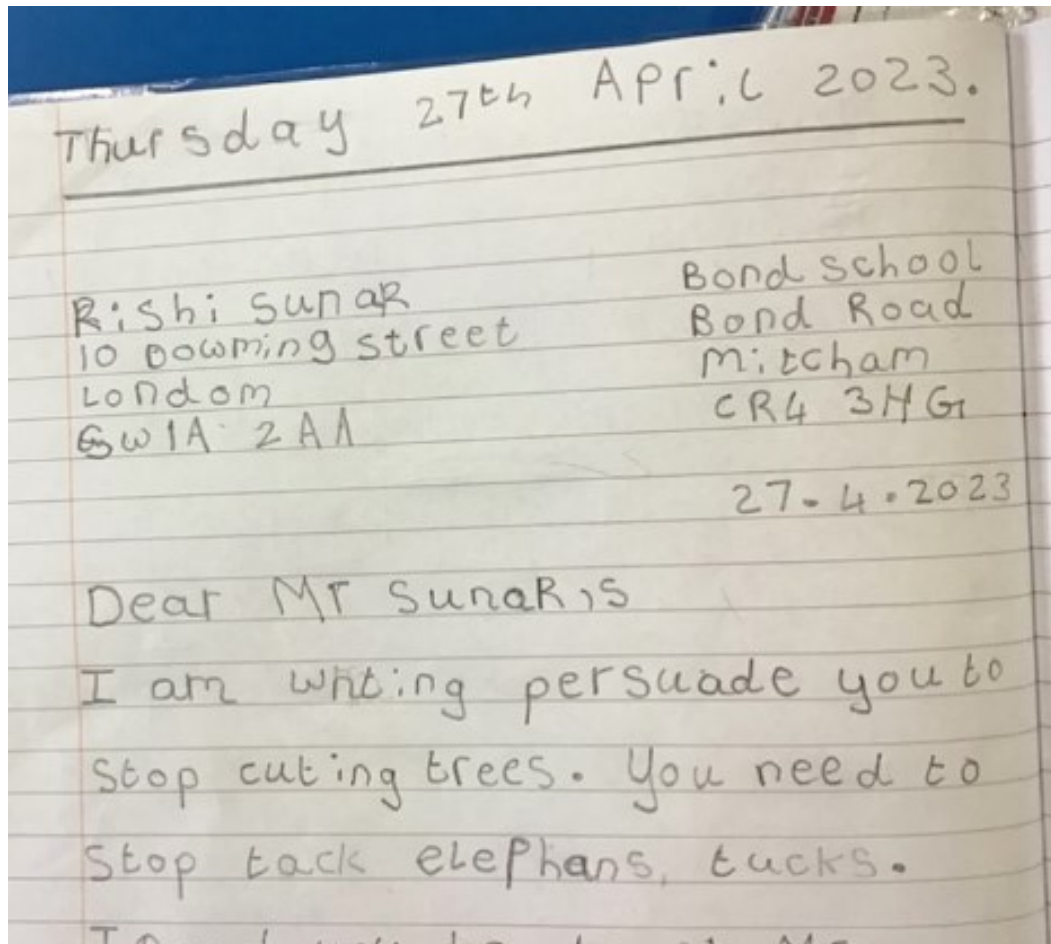 Thursday 27th April 2023.
Rishi Sunak
10 Dowming street
Londom
SW1A 2AA
Bond school
Bond Road
Mitcham
CR4 3HG
27.4.2023
Dear Mr Sunak,s
I am whting persuade you to
Stop cuting trees. You need to
Stop tack elephans, tucks.